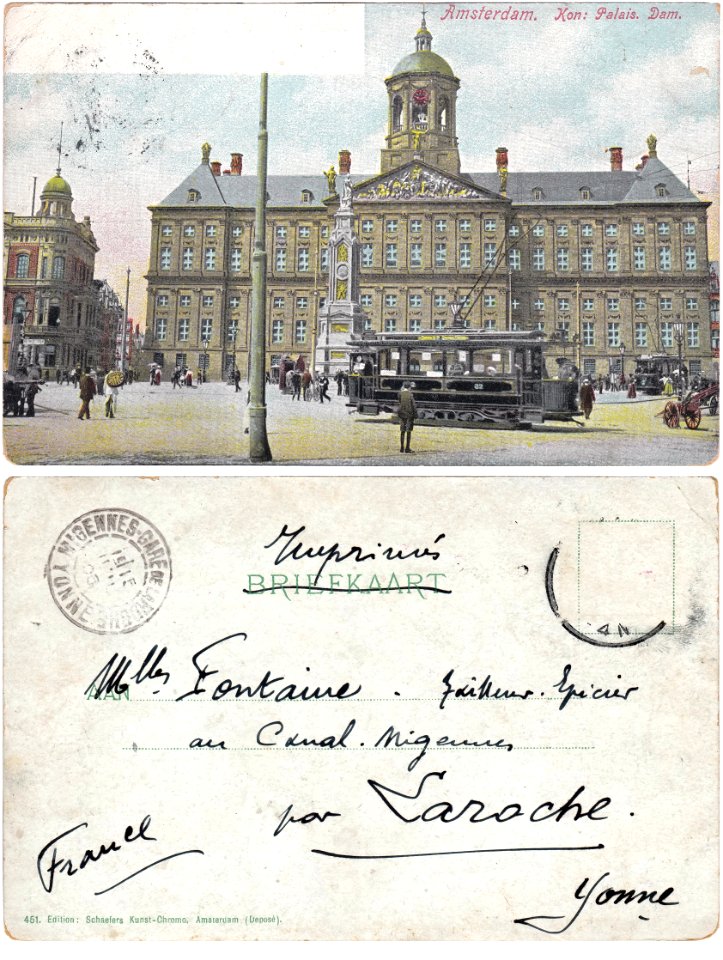 Amsterdam. Kon: Palais. Dam.
62
MIGENNES-GARE
YONNE
Imprimés
BRIEFKAART
AAN
Mlles Fontaine. Epicier
au Canal. Migennes
par Laroche.
France
Yonne
451. Edition: Schaefers Kunst-Chromo, Amsterdam (Deposé).